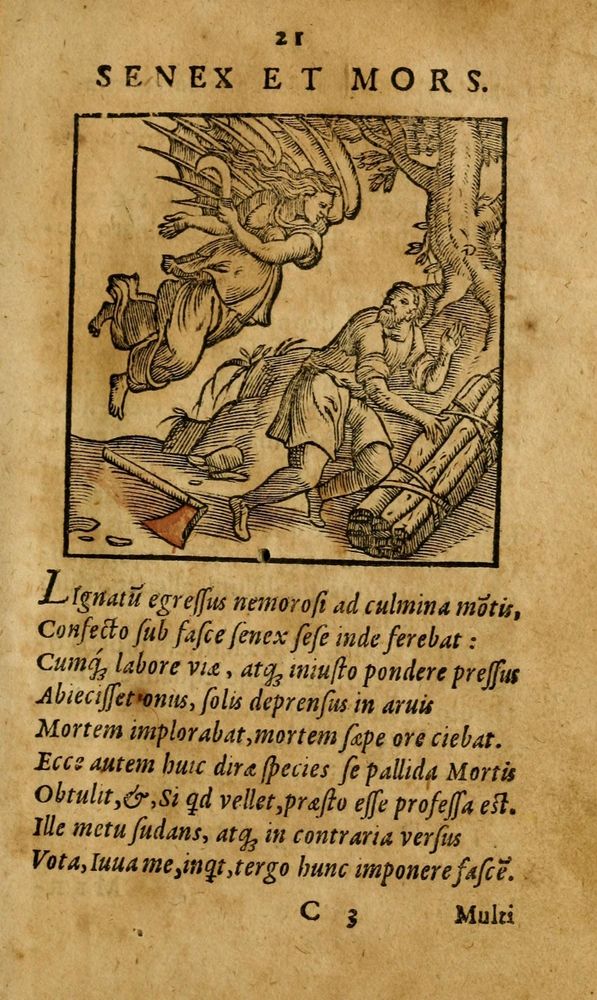 21
SENEX ET MORS.
LIgnatū egreſſus nemoroſi ad culmina mōtis,
Confecto ſub faſce ſenex ſeſe inde ferebat :
Cumq́ꝫ labore viæ, atqꝫ iniuſto pondere preſſus
Abieciſſet onus, ſolis deprenſus in aruis
Mortem implorabat, mortem ſæpe ore ciebat.
Ecce autem huic diræ ſpecies ſe pallida Mortis
Obtulit, &, Si qd vellet, præſto eſſe profeſſa eſt.
Ille metu ſudans, atqꝫ in contraria verſus
Vota, Iuua me, inqt, tergo hunc imponere faſcē.
C 3 Multi